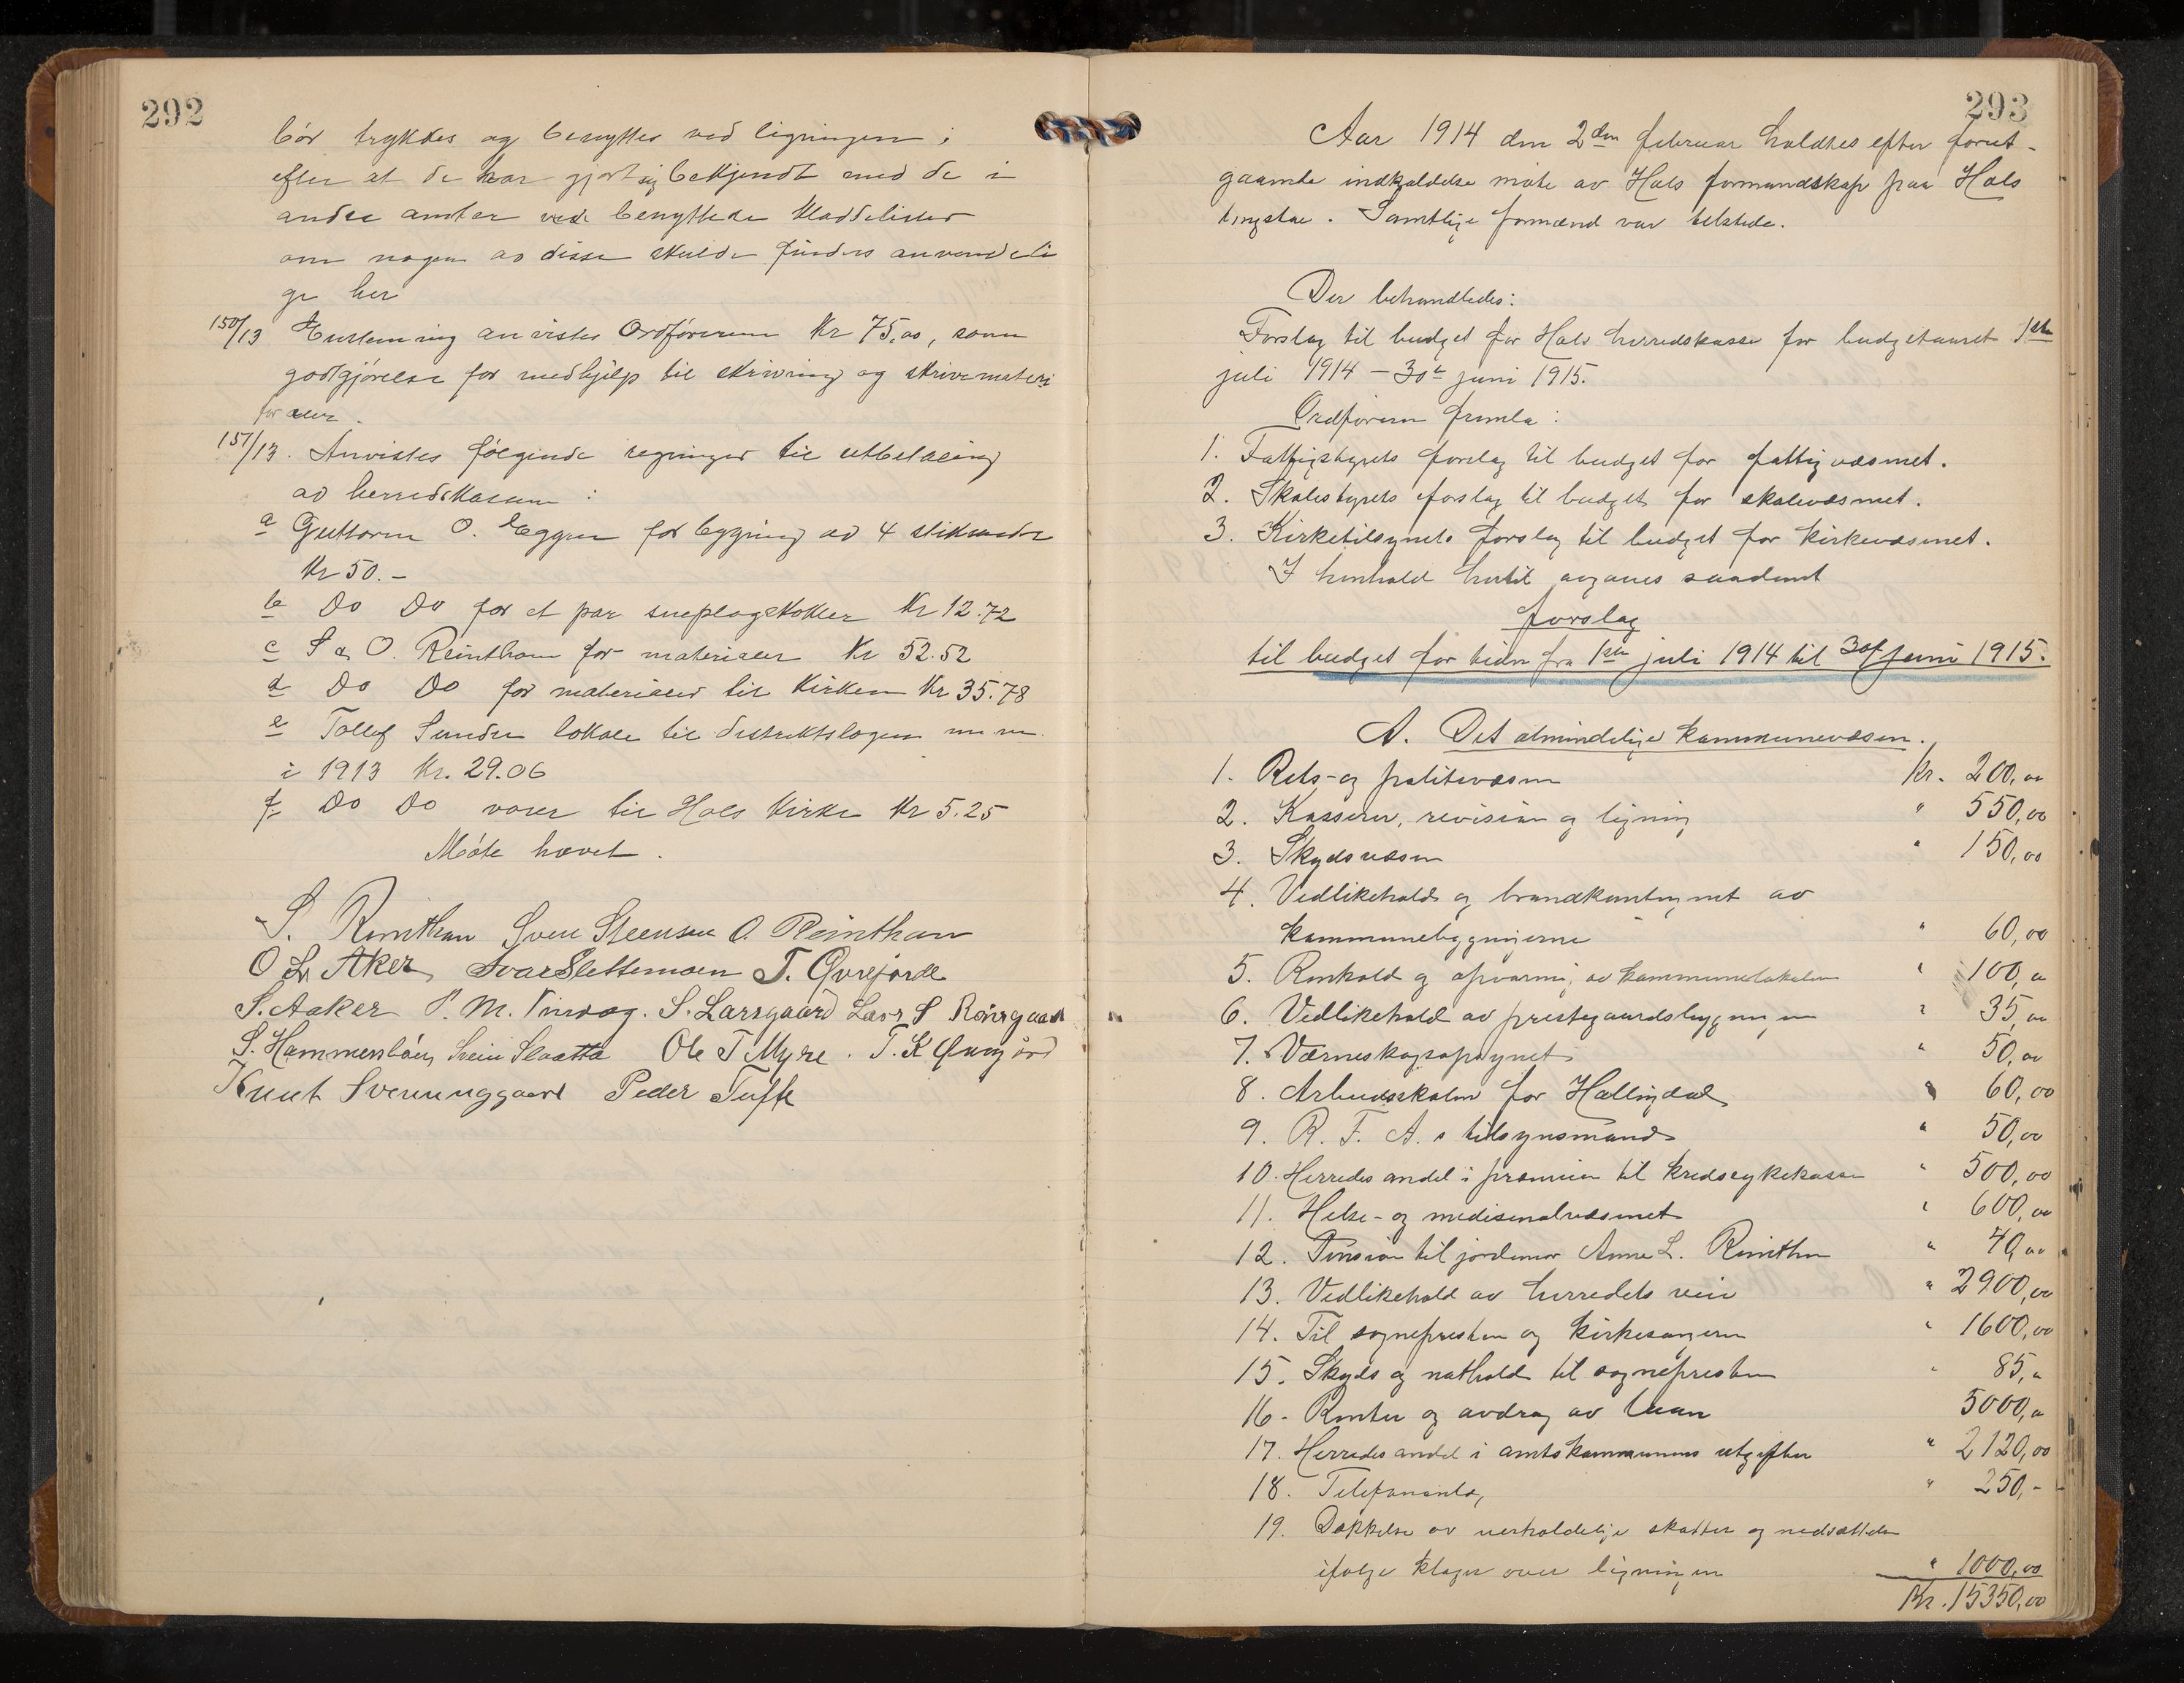 292
bör trykkes og benyttes ved ligningen;
efter at de har gjort sig bekjendt med de i
andre amter ved benyttede kladdelister
om nogen av disse skulde findes anvendeli
ge her
150/13 Enstemmig anvistes Ordföreren Kr 75,00, som
godtgjörelse for medhjelp til skrivning og skrivemateri
aler.
151/13. Anvistes fölgende regninger til utbetaling
av herredskassen:
a Guttorm O. Eggen for bygning av 4 stikrender
Kr 50.-
b Do Do for et par sneplogskokler Kr 12.72
c S & O. Reinthon for materialer Kr 52.52
d Do Do for materialer til kirken Kr 35.78
e Tollef Sundre lokale til distriktslægen m.m.
i 1913 Kr. 29.06
f Do Do varer til Hols kirke Kr 5.25
Möte hævet.
S. Reinthon Sven Steensen O. Reinthon
O L Aker Ivar Slettemoen T. Qvrejorde
S. Aaker P. M. S. Larsgaard Lars S Rönsgaard
S. Hammersböen Svein Slaatta Ole T Myre. T. K
Knut Sveinunggaard Peder Tufte
293
Aar 1914 den 2den februar holdtes efter forut-
gaaende indkaldelse möte av Hols formandskap paa Hols
tingstue. Samtlige formænd var tilstede.
Der behandledes:
Forslag til budget for Hols herredskasse for budgetaaret 1ste
juli 1914 - 30te juni 1915.
Ordföreren fremla:
1. Fattigstyrets forslag til budget for fattigvæsenet.
2. Skolestyrets forslag til budget for skolevæsenet.
3. Kirketilsynets forslag til budget for kirkevæsenet.
I henhold hertil avgaves saadant
forslag
til budget for tiden fra 1ste juli 1914 til 30te juni 1915.
A. Det almindelige kommunevæsen.
1. Rets- og politivæsen kr. 200,00
2. Kasserer, revision og ligning " 550,00
3. Skydsvæsen " 150,00
4. Vedlikehold og brandkontingent av
kommunebygningerne " 60,00
5. Renhold og opvarmn. av kommunelokaler " 100,00
6. Vedlikehold av prestegaardsbygningen " 35,00
7. Værneskogsopsynet " 50,00
8. Arbeidsskolen for Hallingdal " 60,00
9. R. F. A. s tilsynsmand " 50,00
10. Herredes andel i præmien til kredssykekassen " 500,00
11. Helse- og medisinalvæsenet " 600,00
12. Pension til jordemor Anne L. Reinthon " 40,00
13. Vedlikehold av herredets veie " 2900,00
14. Til sognepresten og kirkesangeren " 1600,00
15. Skyds og nathold til sognepresten " 85,00
16. Renter og avdrag av laan 5000,00
17. Herredes andel i amtskommunens utgifter " 2120,00
18. " 250,-
19. Dækkelse av uerholdelige skatter og nedsættelser
ifølge klager over ligningen " 1000,00
Kr. 15350,00